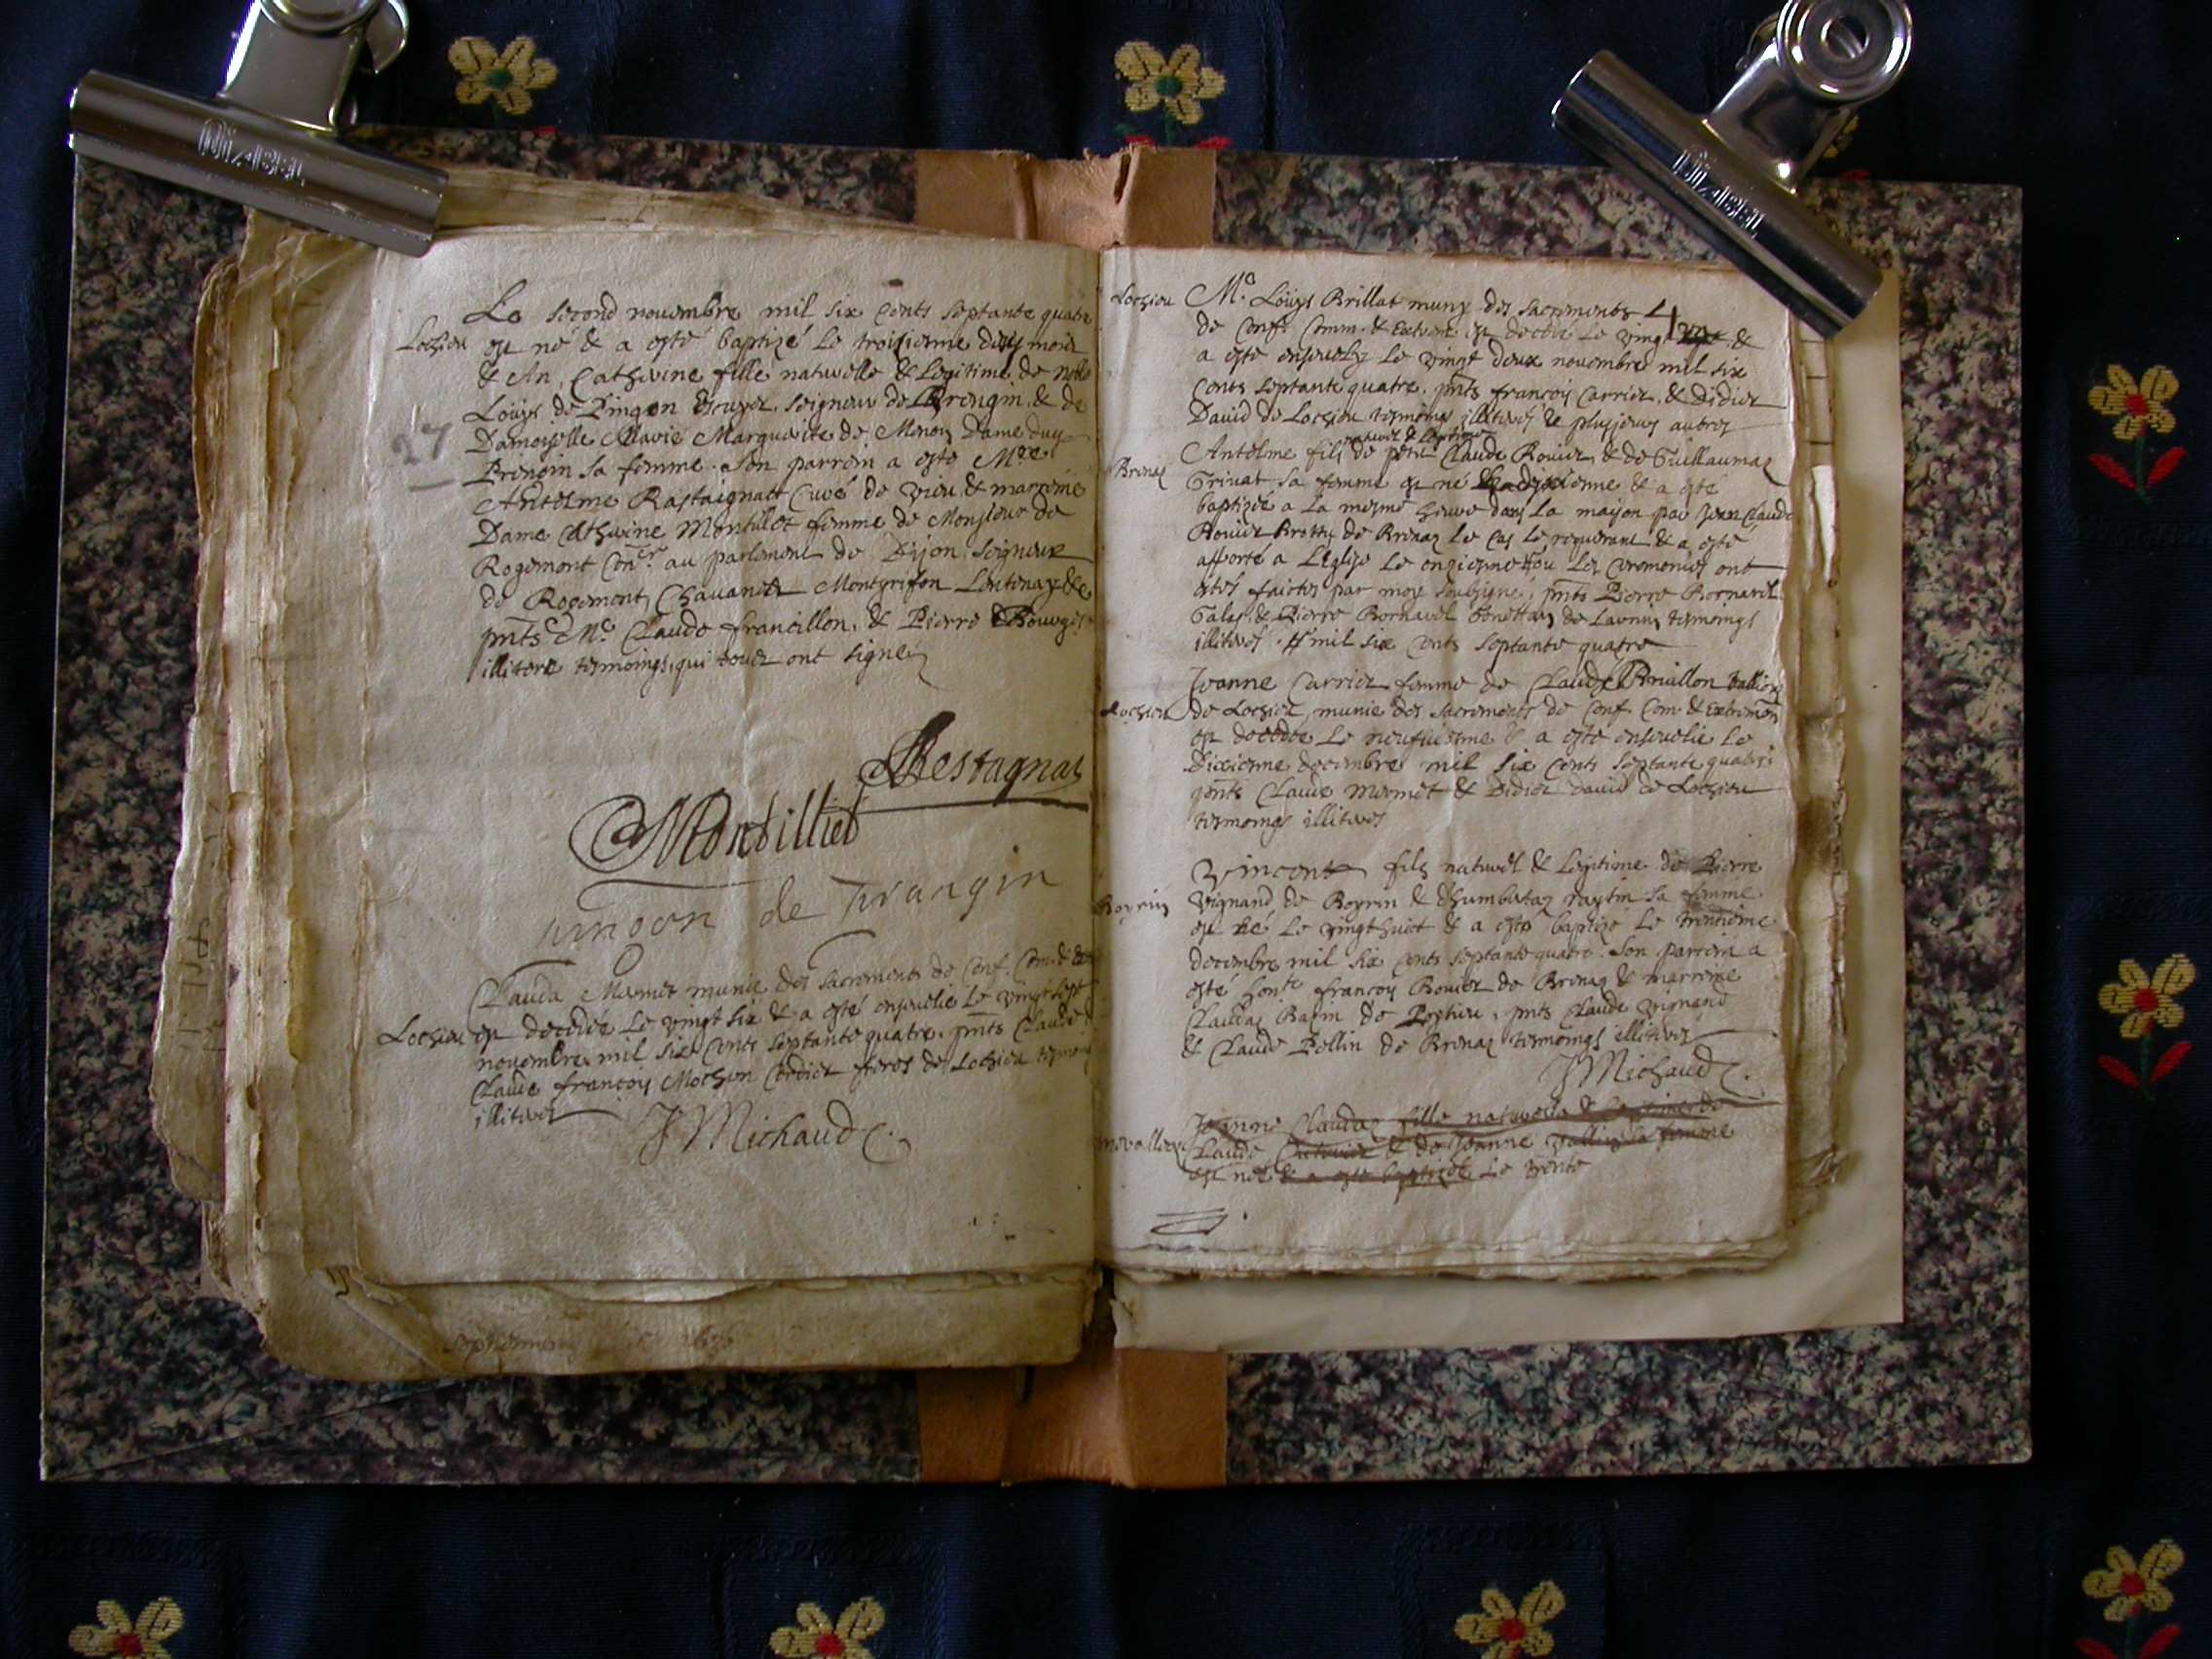 Le second novembre mil six cents septante quatre
Lochieu est né & a esté baptizé le troisiesme desdis mois
& An, Catherine fille naturelle & legitime de noble
Loüys de Pingon Escuyer seigneur de Prengin & de
27 Damoiselle Marie Marguerite de Menon Dame duy
Prengin sa femme. Son parrein a esté Mre
Anthelme Rastaignact Curé de vieu & marreine
Dame Catherine Montillet femme de Monsieur de
Rogemont Coner au parlement de Dijon Seigneur
de Rogemont, Chavanes Montgrifon Lentenay &c
pnts Me Claude francillon, & Pierre Bourges
illitere tesmoings, qui scavez ont signe
Restagnat
Montilliet
pingon de Prangin
Clauda Mermet munie des sacrements de Conf. Com. & Ext
Lochieu est decedée le vingt six & a esté ensevelie le vingt sept
novembre mil six cents septante quatre. pnts Claude &
Claude françoy Mochon Cordier freres de Lochieu tesmoings
illiteres
J Michaud C.
Lochieu Me Loüys Brillat muny des sacrements
de Conf. Comm. & Extrem. est decedé le vingt &
a esté ensevely le vingt deux novembre mil six
cents septante quatre. pnts françoy Carrier, & Didier
David de Lochieu tesmoings illiteres & plusieurs autres
naturel & legitime
Brenaz Antelme fils de petit Claude Rouier, & de Guillaumaz
Trivat sa femme est ne dixiesme & a este
baptizée a la mesme heure dans la maison par Jean Claude
Rouier de Brenaz le cas le requerant & a esté
apporté a L'Eglise le onziesme ou les ceremonies ont
estes faictes par moy soubsigné, pnts Pierre Bornarel
& Pierre Bornarel de Lavnin tesmoings
illiteres. # mil six cents septante quatre
Jeanne Carrier femme de Claude Bruillon
Lochieu de Lochieu, munie des sacrements de Conf. Com. & Extremon
est decedée le neufviesme & a esté ensevelie le
Dixiesme decembre mil six cents septante quatre
pnts Claude Mermet & Didier David de Lochieu
tesmoings illiteres
Vincent fils naturel & legitime de Pierre
Boyrin Vignand de Boyrin & d'humbertaz sa femme
est né le vingt huict & a esté baptizé le trentiesme
decembre mil six cents septante quatre. Son parrein a
esté hont françoy Rouier de Brenaz & marreine
Claudaz Bazin de, pnts Claude Vignand
& Claude Pollin de Brenaz tesmoings illiteres
J Michaud C.
Jeanne Claudaz fille naturelle & legitime de
Claude & de Jeanne sa femme
est née & a esté baptizée le trente